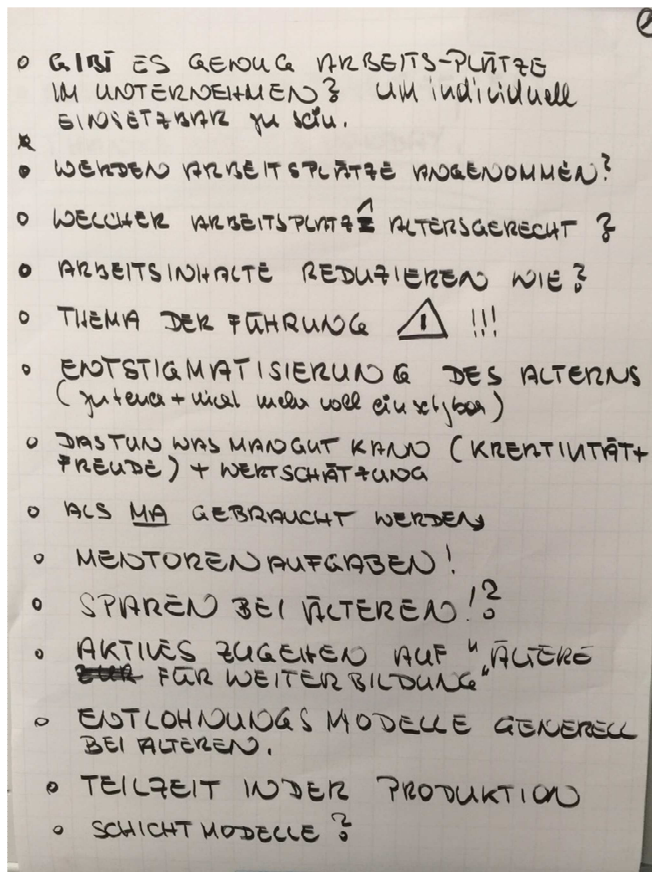 1
• GIBT ES GENUG ARBEITS-PLÄTZE
IM UNTERNEHMEN? UM individuell
EINSETZBAR zu sein.
• WERDEN ARBEITSPLÄTZE ANGENOMMEN?
• WELCHER ARBEITSPLATZ ALTERSGERECHT?
• ARBEITSINHALTE REDUZIEREN WIE?
• THEMA DER FÜHRUNG ! !!!
• ENTSTIGMATISIERUNG DES ALTERNS
(zu teuer + nicht mehr voll einsetzbar)
• DAS TUN WAS MAN GUT KANN (KREATIVITÄT +
FREUDE) + WERTSCHÄTZUNG
• ALS MA GEBRAUCHT WERDEN
• MENTORENAUFGABEN!
• SPAREN BEI ÄLTEREN!?
• AKTIVES ZUGEHEN AUF "ÄLTERE
FÜR WEITERBILDUNG"
• ENTLOHNUNGSMODELLE GENERELL
BEI ÄLTEREN.
• TEILZEIT IN DER PRODUKTION
• SCHICHTMODELLE?